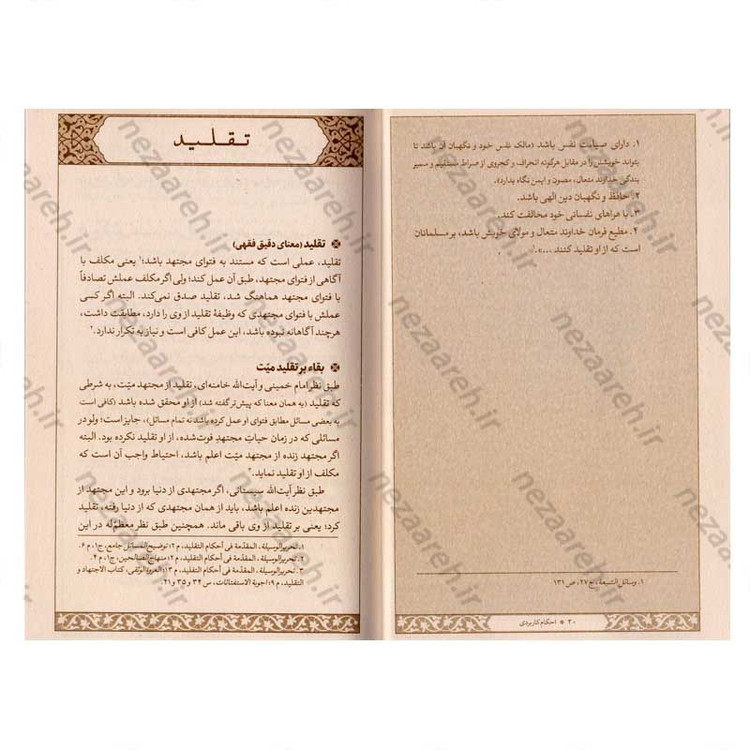 ۱. دارای صیانت نفس باشد (مالک نفس خود و نگهبان آن باشد تا
بتواند خویشتن را در مقابل هرگونه انحراف و کجروی از صراط مستقیم و مسیر
بندگی خداوند متعال، مصون و ایمن نگاه بدارد).
۲. حافظ و نگهبان دین الهی باشد.
۳. با هواهای نفسانی خود مخالفت کند.
۴. مطیع فرمان خداوند متعال و مولای خویش باشد، بر مسلمانان
است که از او تقلید کنند ...».۱
۱. وسائل الشیعة، ج۲۷، ص ۱۳۱
۲۰ * احکام کاربردی
تقلید
تقلید (معنای دقیق فقهی)
تقلید، عملی است که مستند به فتوای مجتهد باشد؛۱ یعنی مکلف با
آگاهی از فتوای مجتهد، طبق آن عمل کند؛ ولی اگر مکلف عملش تصادفاً
با فتوای مجتهد هماهنگ شد، تقلید صدق نمی‌کند. البته اگر کسی
عملش با فتوای مجتهدی که وظیفهٔ تقلید از وی را دارد، مطابقت داشت،
هرچند آگاهانه نبوده باشد، این عمل کافی است و نیاز به تکرار ندارد.۲
بقاء بر تقلید میّت
طبق نظر امام خمینی و آیت‌الله خامنه‌ای، تقلید از مجتهد میّت، به شرطی
که تقلید (به همان معنا که پیش‌تر گفته شد) از او محقق شده باشد (کافی است
به بعضی مسائل مطابق فتوای او عمل کرده باشد نه تمام مسائل)، جایز است؛ ولو در
مسائلی که در زمان حیاتِ مجتهدِ فوت‌شده، از او تقلید نکرده بود. البته
اگر مجتهد زنده از مجتهد میّت اعلم باشد، احتیاط واجب آن است که
مکلف از او تقلید نماید.۳
طبق نظر آیت‌الله سیستانی، اگر مجتهدی از دنیا برود و این مجتهد از
مجتهدین زنده اعلم باشد، باید از همان مجتهدی که از دنیا رفته، تقلید
کرد؛ یعنی بر تقلید از وی باقی ماند. همچنین طبق نظر معظّم‌له در این
۱. تحریر الوسیلة، المقدّمة فی أحکام التقلید، م ۲؛ توضیح المسائل جامع، ج۱، م ۶.
۲. تحریر الوسیلة، المقدّمة فی أحکام التقلید، م ۲؛ منهاج الصالحین، ج۱، م ۴.
۳. تحریر الوسیلة، المقدّمة فی أحکام التقلید، م ۱۳؛ العروة الوثقی، کتاب الاجتهاد و
التقلید، م ۹؛ اجوبة الاستفتائات، س ۳۴ و ۳۵ و ۴۱.
nezaareh.ir